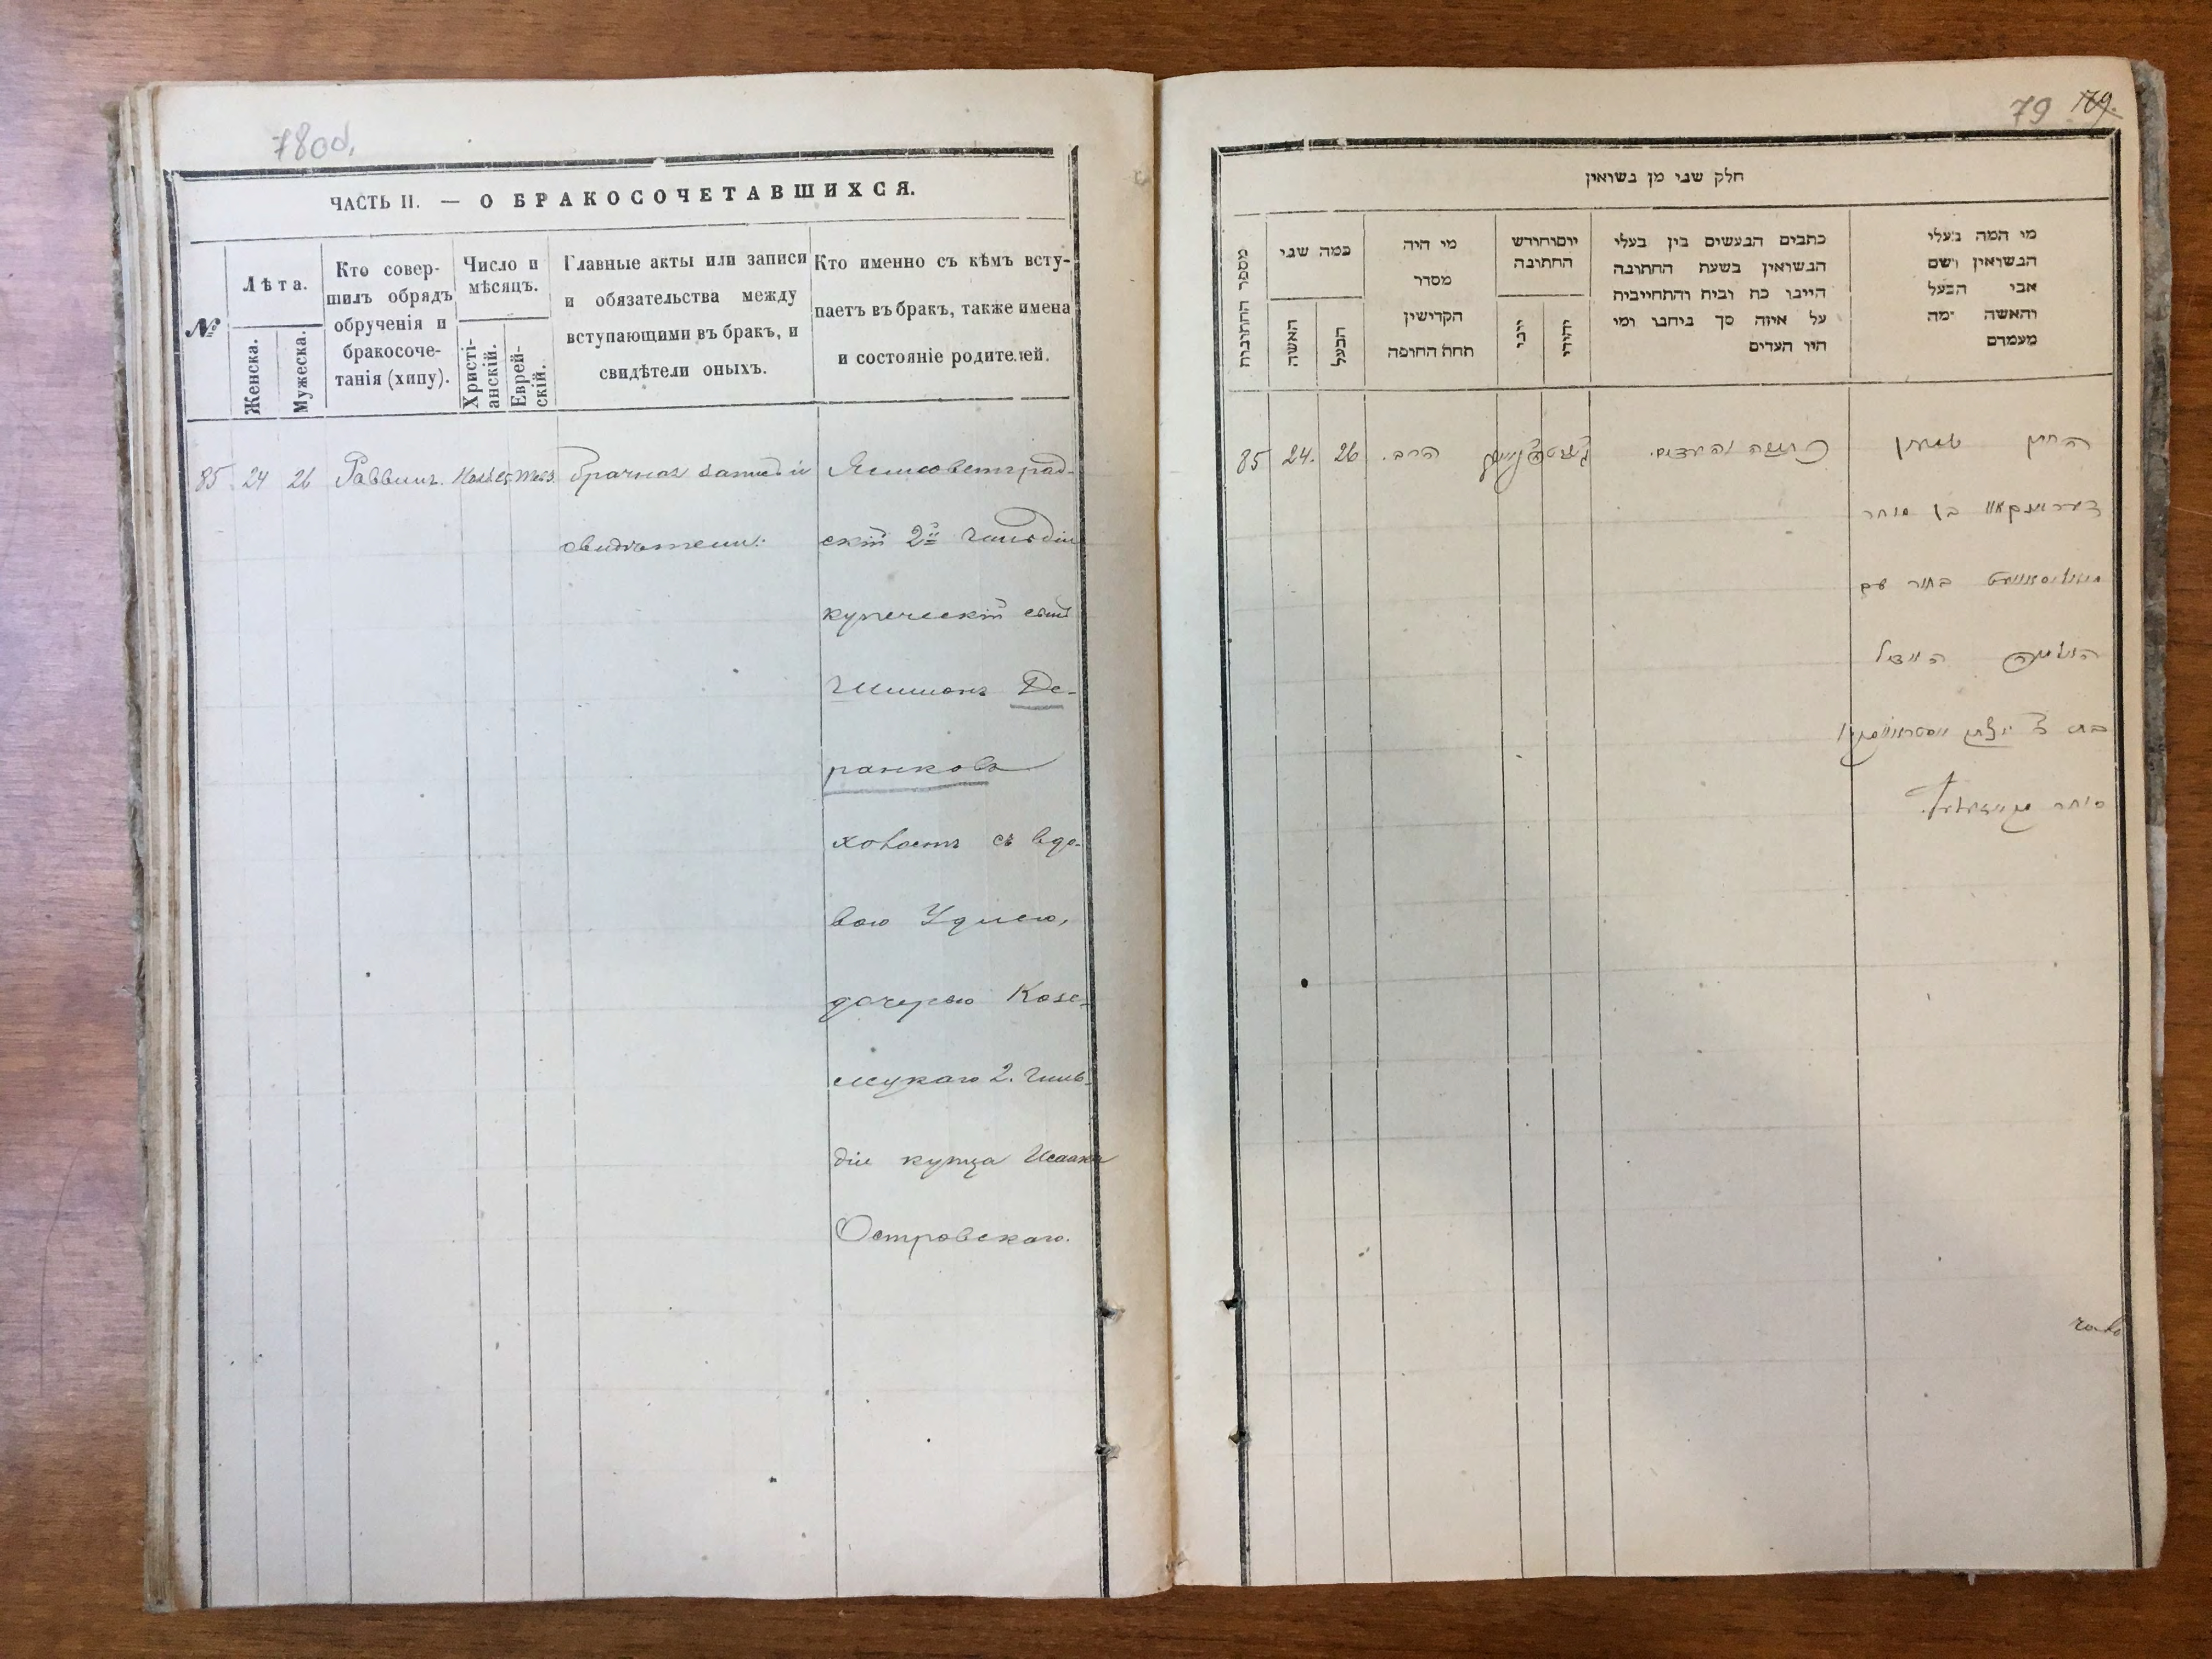 78об.
ЧАСТЬ II. — О БРАКОСОЧЕТАВШИХСЯ.
№
Лѣта.
Женска.
Мужеска.
Кто совер-
шилъ обрядъ
обрученія и
бракосоче-
танія (хипу).
Число и
мѣсяцъ.
Христі-
анскій.
Еврей-
скій.
Главные акты или записи
и обязательства между
вступающими въ бракъ, и
свидѣтели оныхъ.
Кто именно съ кѣмъ всту-
паетъ въ бракъ, также имена
и состояніе родителей.
85 24 26 Раввинъ.
Брачная запись и
свидѣтели.
Елисоветград-
скій 2й гильдіи
купеческій сынъ
Шимонъ Де-
ранковъ
холостъ съ вдо-
вою Удлею,
дочерью Козе-
лецкаго 2. гиль-
діи купца Исаака
Островскаго.
79 179.
חלק שני מן נשואין
מספר החתונות
כמה שני
האשה
הבעל
מי היה
מסדר
הקדישין
תחת החופה
יום וחודש
החתונה
יוני
יהודי
כתבים הנעשים בין בעלי
הנשואין בשעת החתונה
היינו כת ובית והתחייבית
על איזה סך ביחבו ומי
היו העדים
מי המה בעלי
הנשואין ושם
אבי הבעל
והאשה ומה
מעמדם
85 24. 26 הרב.
כתובה והעדים.
החתן שמעון
דעראנקאוו בן סוחר
בחור עם
האלמנה
בת
סוחר